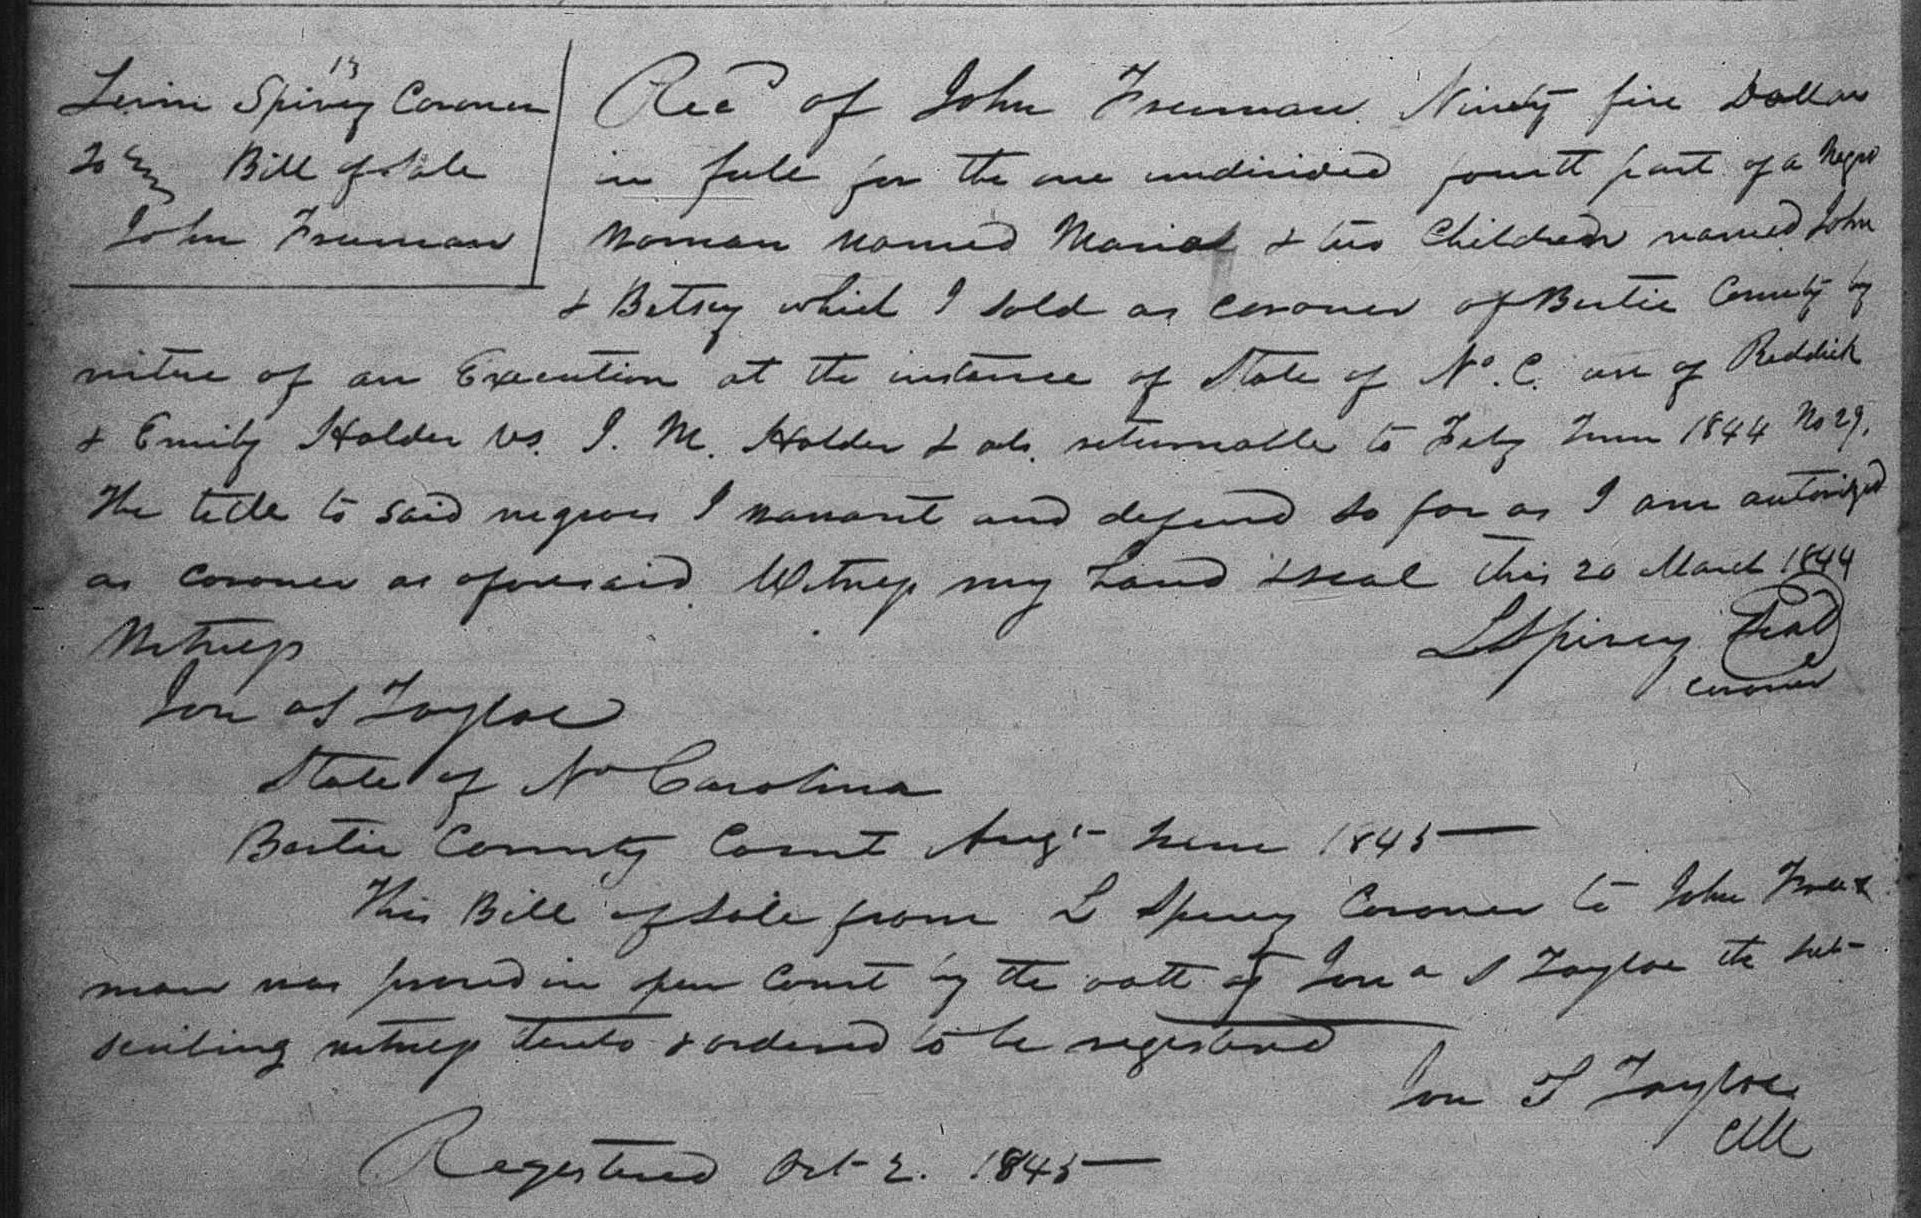 13
Levin Spivey Coroner
To Bill of Sale
John Freeman
Recd of John Freeman Ninety five Dollars
in full for the one undivided fourth part of a Negro
Woman named Maria & two Children named John
& Betsey which I sold as coroner of Bertie County by
virtue of an Execution at the instance of State of No. C. use of Reddick
& Emily Holder vs. J. M. Holder & als. returnable to Feby Term 1844 No 29.
The title to said negroes I warrant and defend so far as I am autorized
as coroner as aforesaid. Witness my hand & seal this 20 March 1844
Witness
L Spivey Seal
coroner
Jon S Tayloe
State of No Carolina
Bertie County Court Augt Term 1845
This Bill of Sale from L Spivey Coroner to John Free
man was proved in open Court by the oath of Jona S Tayloe the sub-
scribing witness thereto & ordered to be registered
Jon S Tayloe
Clk
Registered Oct 2. 1845